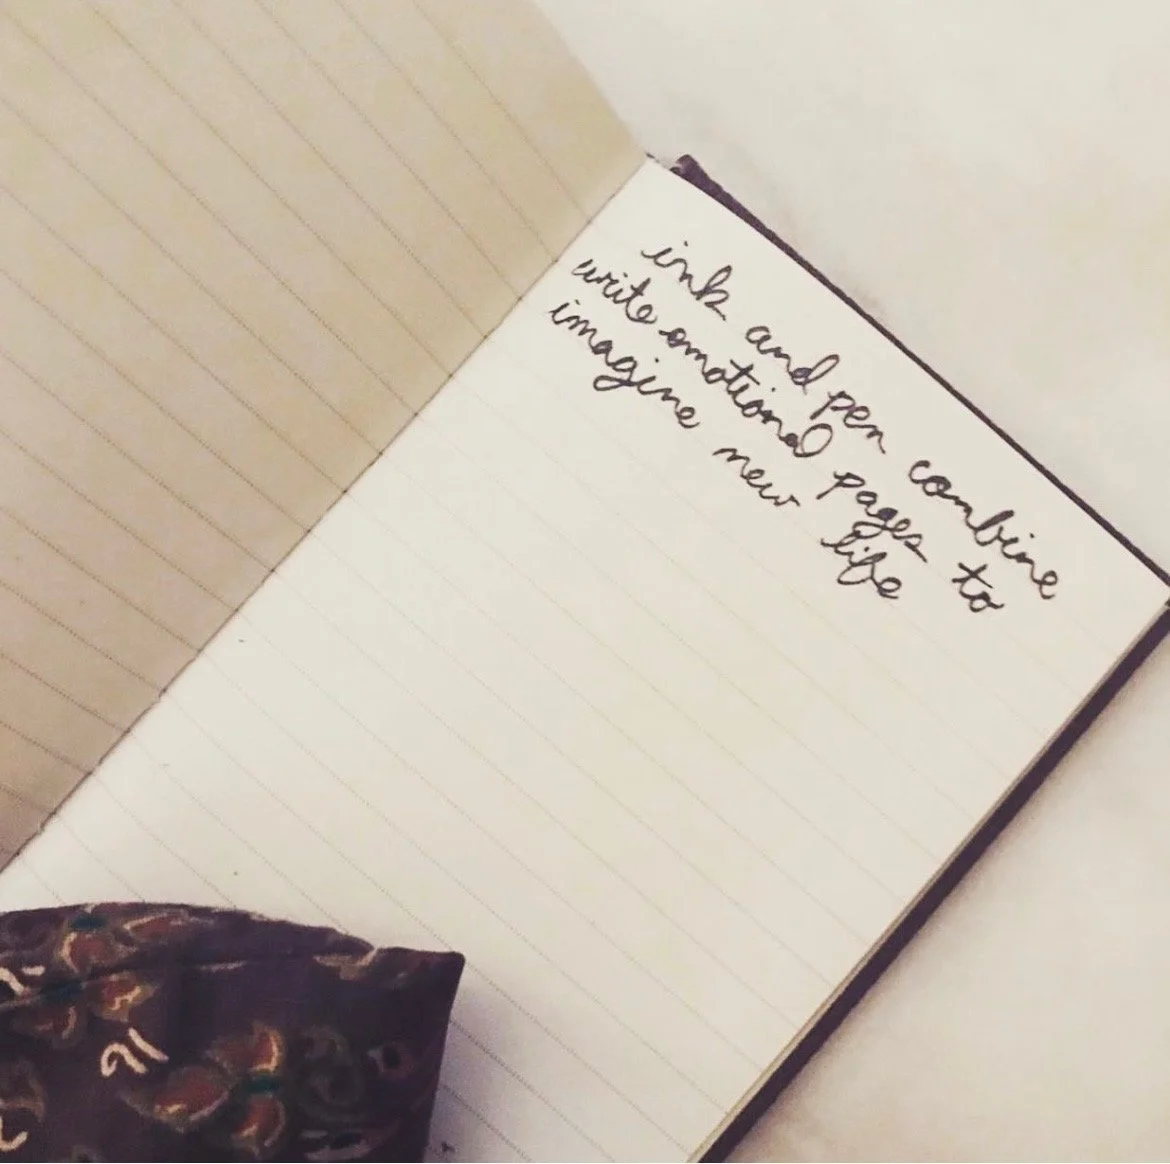 ink and pen combine
write emotional pages to
imagine new life